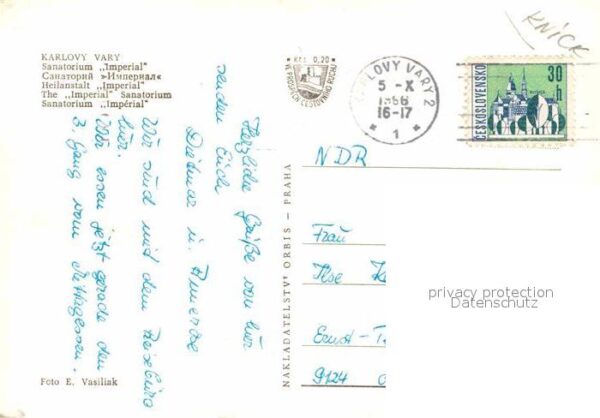 KARLOVY VARY
Sanatorium „Imperial"
Санаторий »Империал«
Heilanstalt „Imperial"
The „Imperial" Sanatorium
Sanatorium „Impérial"
Herzliche Grüße von hier
senden Euch
Dietmar u.
Wir sind mit dem Reisebüro
hier.
Wir essen jetzt gerade den
3. Gang vom Mittagessen.
Foto E. Vasiliak
NAKLADATELSTVÍ ORBIS — PRAHA
Kčs 0,20
KARLOVY VARY 2
5 -X
1968
16-17
* 1 *
ČESKOSLOVENSKO
30 h
KNICK
NDR
Frau
Ilse K
Ernst-T
9124
privacy protection
Datenschutz